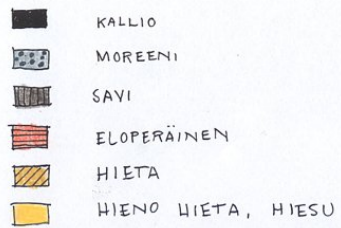 KALLIO
MOREENI
SAVI
ELOPERÄINEN
HIETA
HIENO HIETA, HIESU